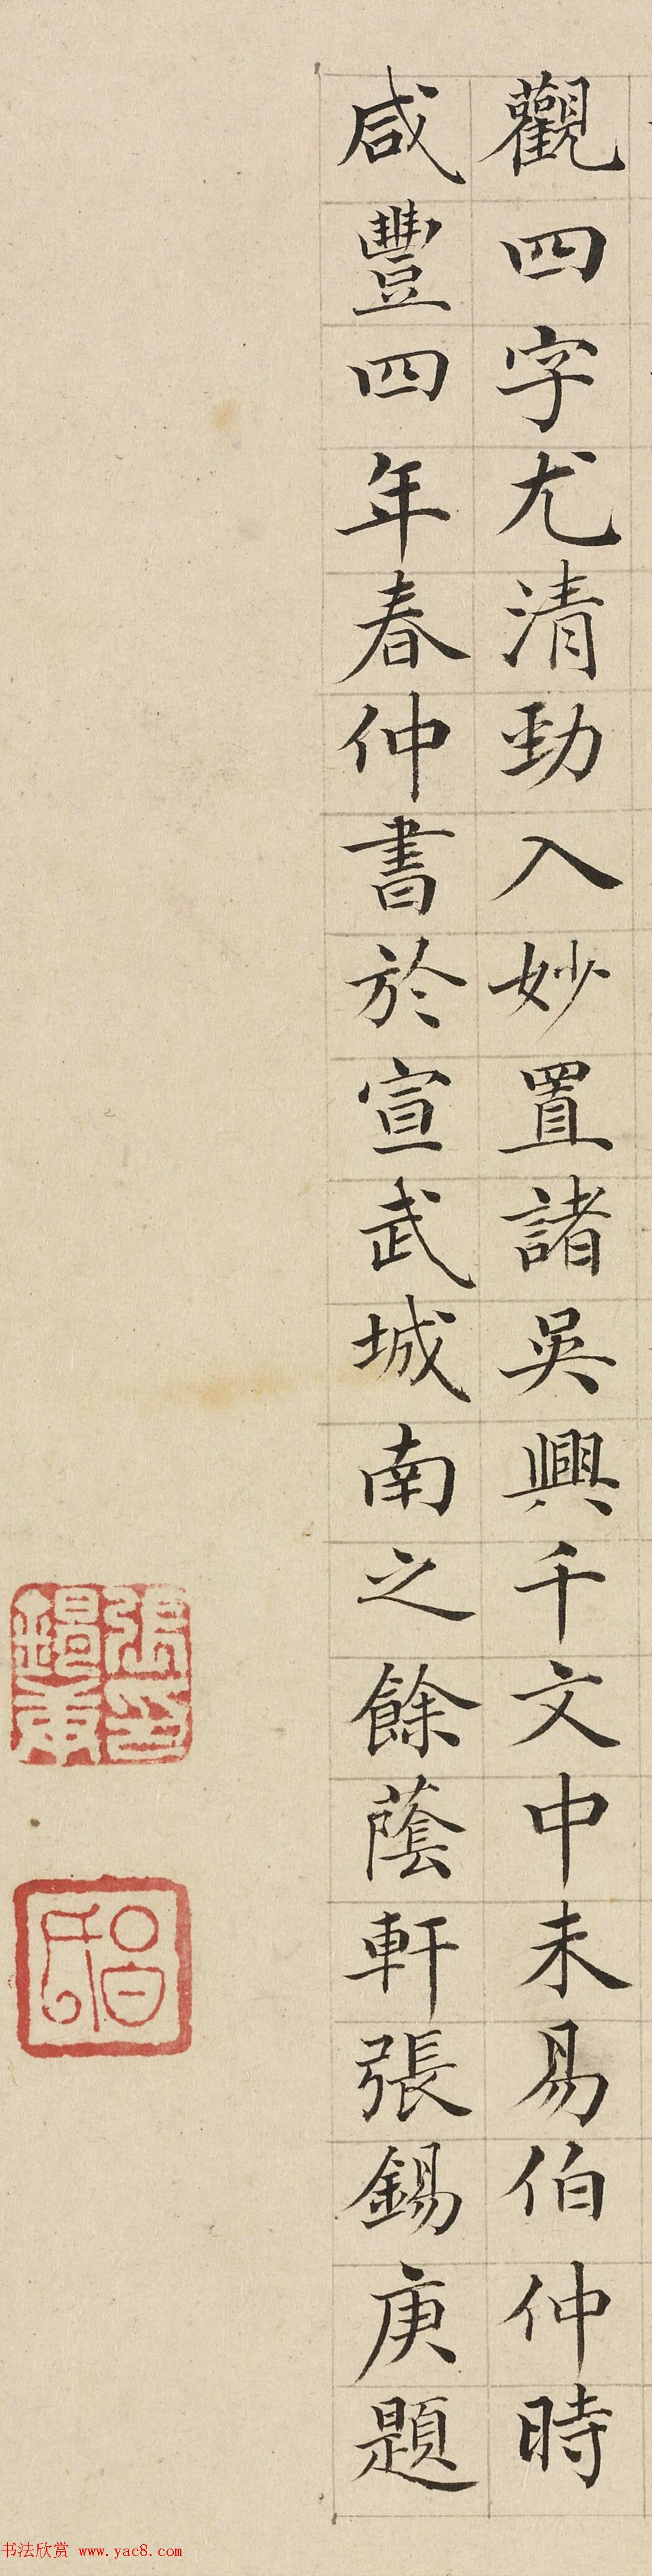 觀四字尤清勁入妙置諸吳興千文中未易伯仲時
咸豐四年春仲書於宣武城南之餘蔭軒張錫庚題
張印錫庚
书法欣赏 www.yac8.com